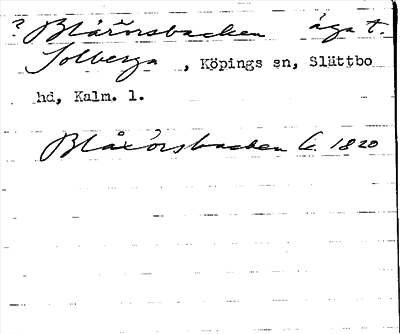 ? Blårörsbacken äga t.
Solberga, Köpings sn, Slättbo
hd, Kalm. l.
Blåxörsbacken C. 1820